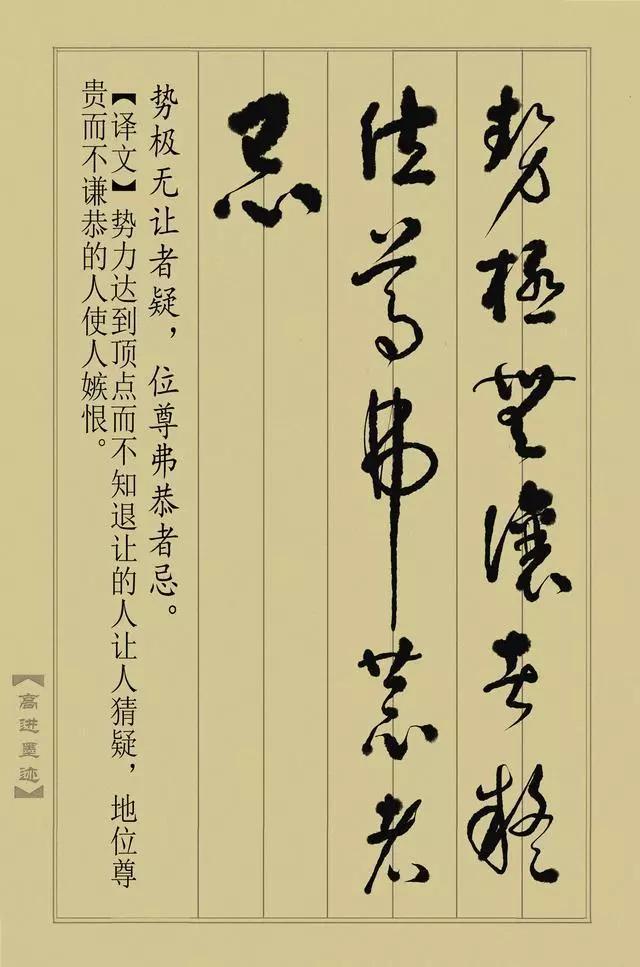 势极無让者疑
位尊弗恭者
忌
势极无让者疑，位尊弗恭者忌。
【译文】势力达到顶点而不知退让的人让人猜疑，地位尊
贵而不谦恭的人使人嫉恨。
【高进墨迹】